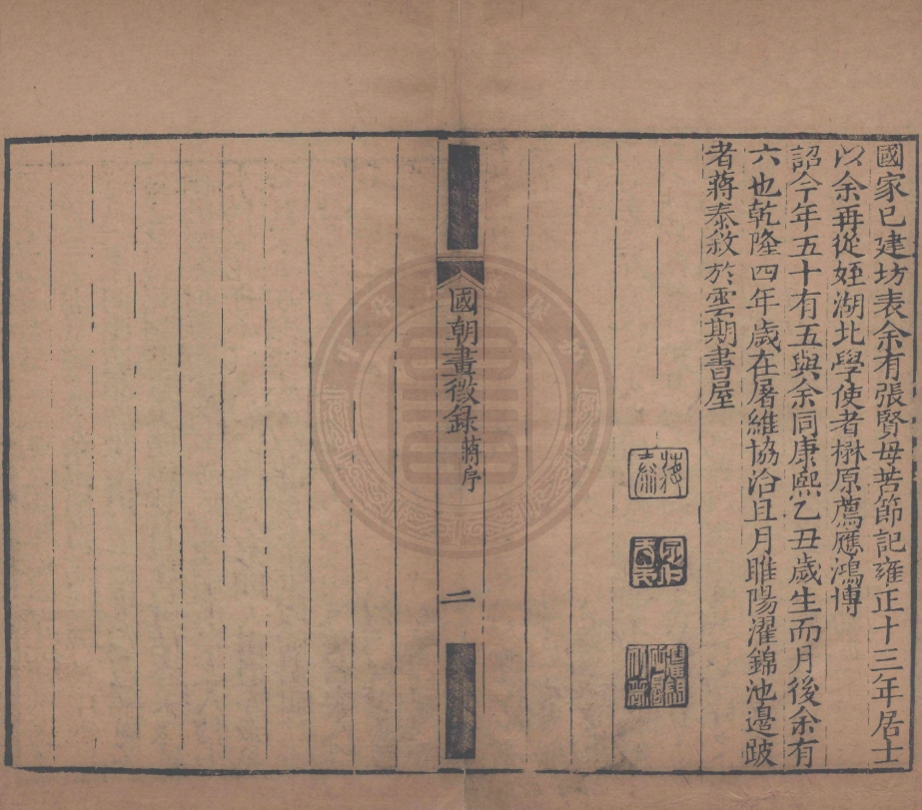 國家已建坊表余有張賢母苦節記雍正十三年居士
以余再從姪湖北學使者楙原薦應鴻博
詔今年五十有五與余同康熙乙丑歲生而月後余有
六也乾隆四年歲在屠維協洽且月睢陽濯錦池邊跛
者蔣泰敘於雲期書屋
國朝畫徵錄 蔣序
二